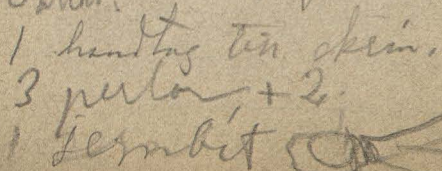 1 handtag till skrin.
3 perlor + 2.
1 jernbit